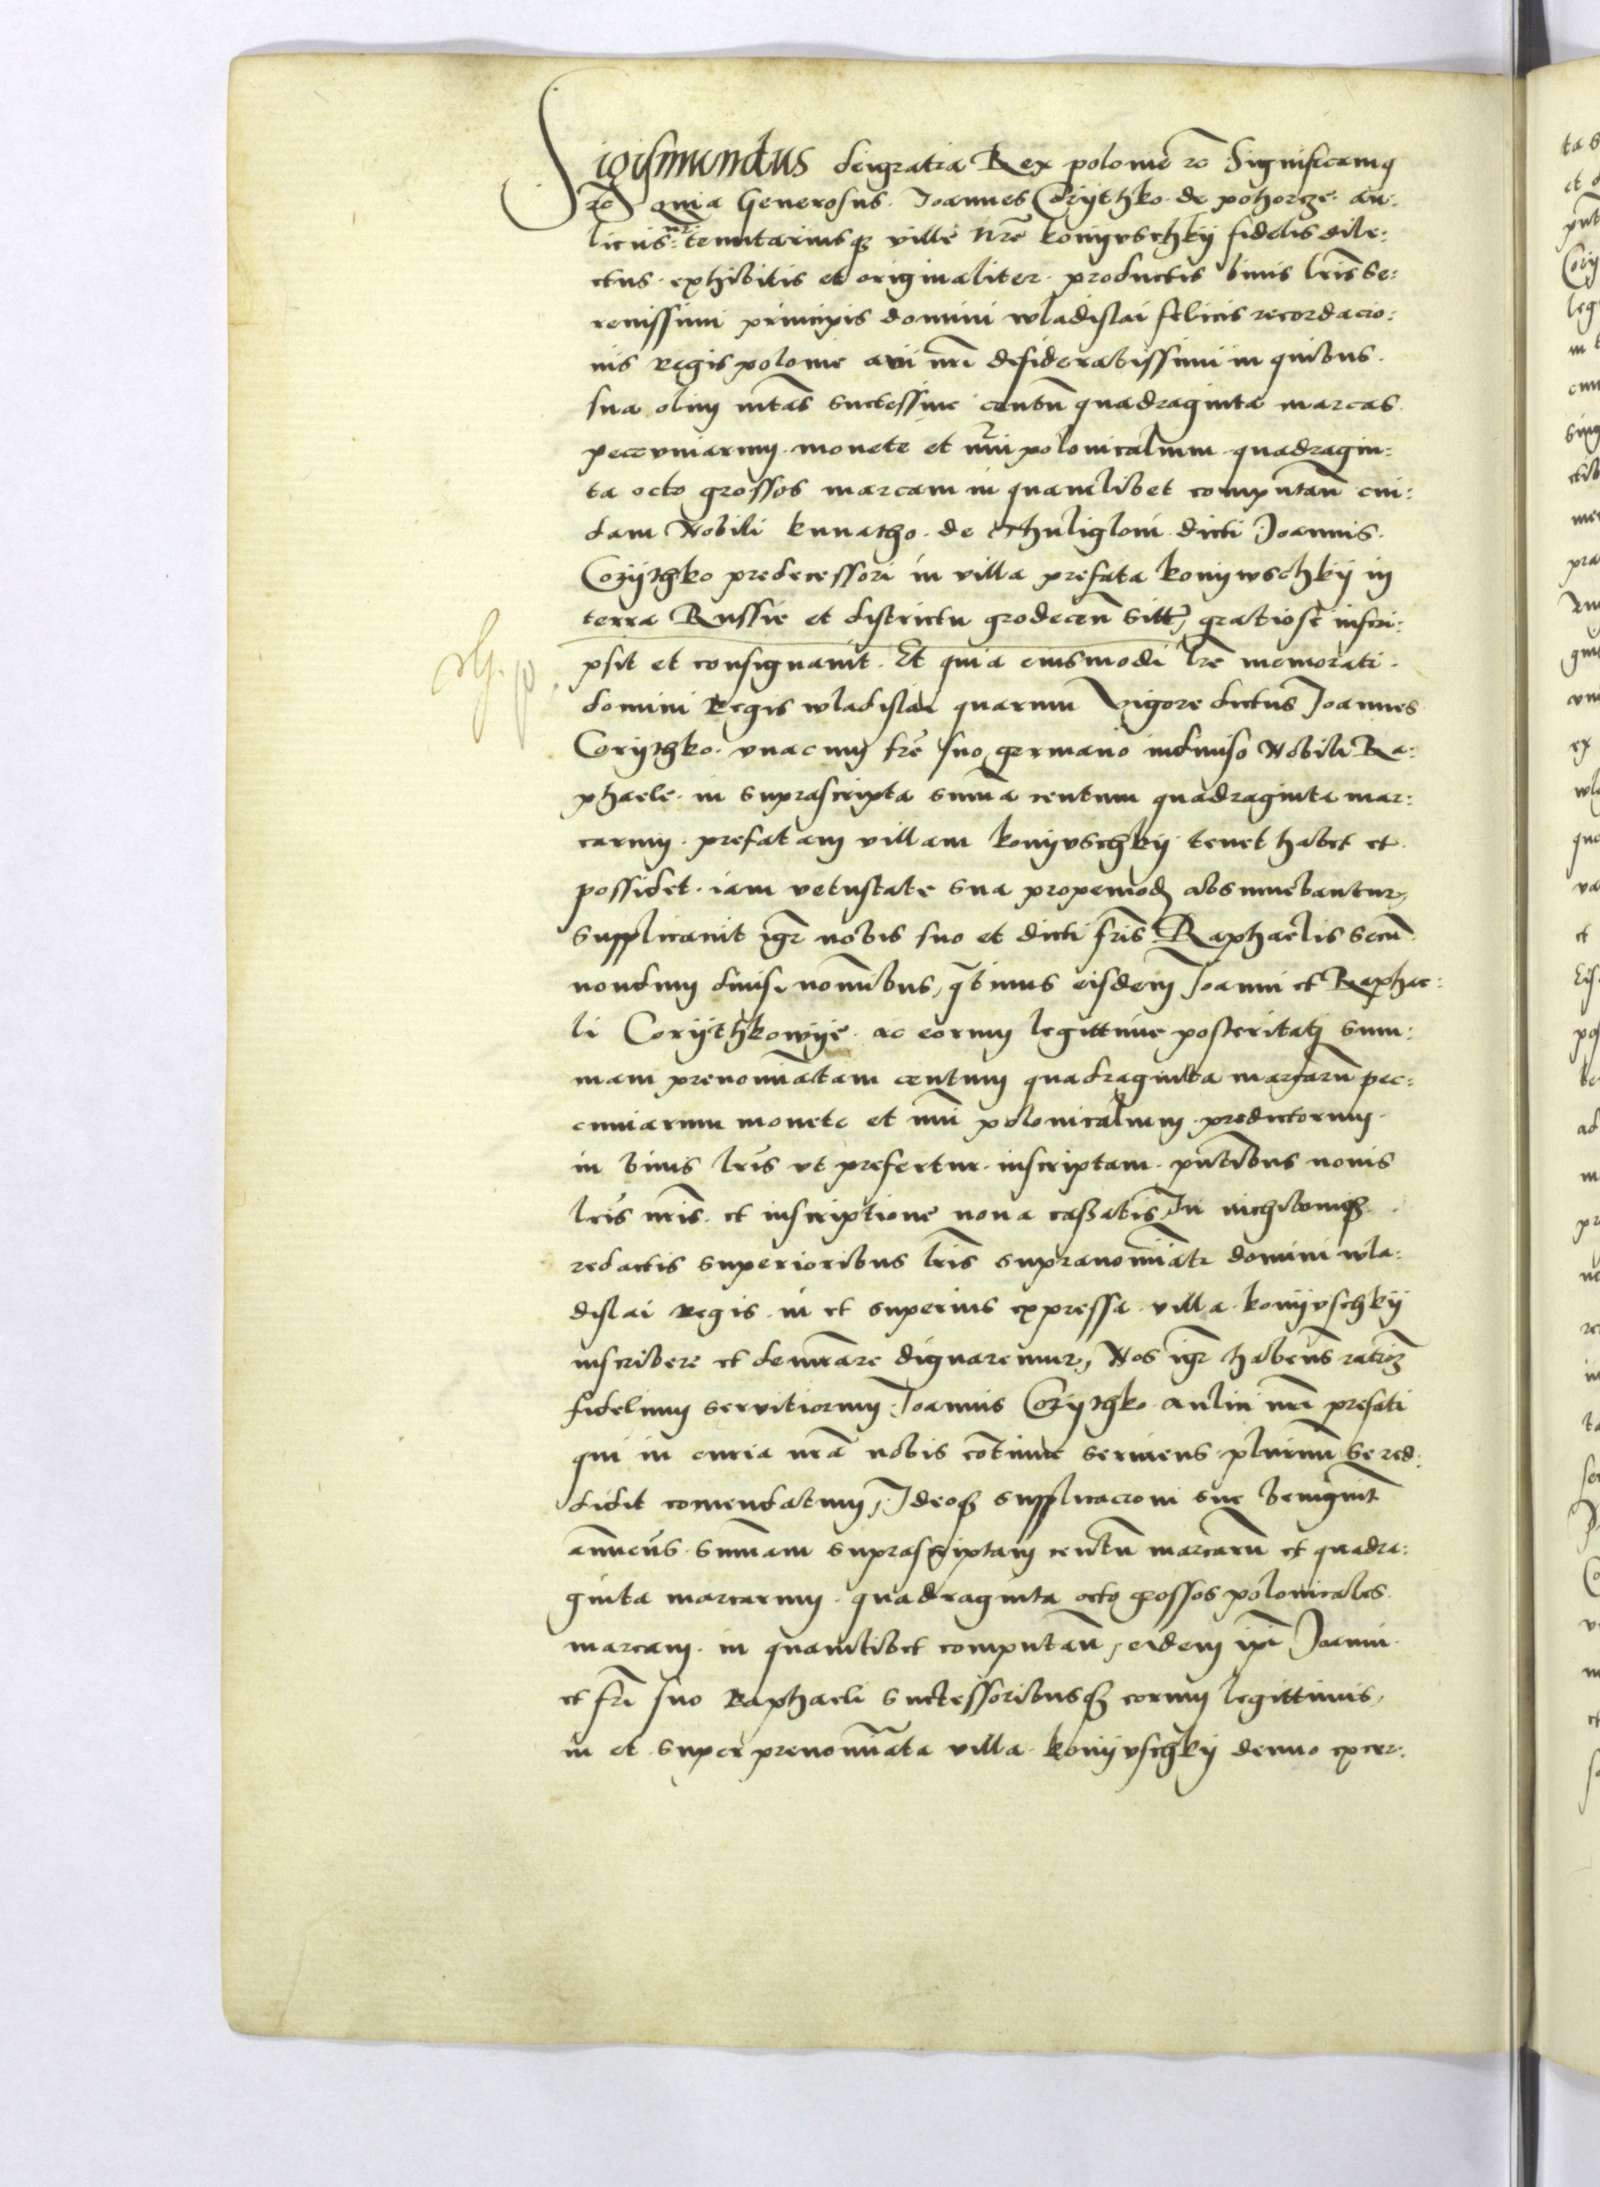 Sigismundus dei gratia Rex polonie rc Significamus
rc Quia Generosus Joannes Corythko de pohorcze au:
licus nr tenutariusq ville nre konyuschky fidelis dile:
ctus exhibitis et originaliter productis binis lris Se:
renissimi principis domini wladislai felicis recordacio:
nis Regis polonie avi nri desideratissimi in quibus
sua olim mtas successive centu quadraginta marcas
peccuniarum monete et nri polonicalium quadragin:
ta octo grossos marcam in quamlibet computan cui:
dam Nobili kunatho de Thuligloui dicti Joannis
Corythko predecessori in villa prefata konywschky in
terra Russie et districtu grodecen sitt, gratiose inscri:
psit et consignauit. Et quia eiusmodi lre memorati
domini Regis wladislai quarum vigore dictus Joannes
Corythko vnacum fre suo germano indiuiso Nobili Ra:
phaele in suprascripta suma centum quadraginta mar:
carum prefatam villam konyuschky tenet habet et
possidet iam vetustate sua propemod absumebantur,
Supplicauit igr nobis suo et dicti fris Raphaelis secu
nondum diuisi nomibus, qtinus eisdem Joanni et Raphae:
li Corythkowye ac eorum legittime posteritati sum:
mam prenomiatam centum quadraginta marcaru pec:
cuniarum monete et nri polonicalium predictorum
in binis lris vt prefertur inscriptam pntibus nouis
lris nris et inscriptione noua cassatis In nichilumq
redactis superioribus lris supranomiati domini wla:
dislai Regis in et superius expressa villa konyuschky
inscribere et demrare dignaremur, Nos igr habens ration
fidelium servitiorum Joannis Corythko aulici nri prefati
qui in curia nra nobis cotinue seruiens plurimu se red:
didit comendatum, Ideoq supplicacioni sue benignit
annuens Summam suprascriptam centu marcaru et quadra:
ginta marcarum quadraginta octo grossos polonicales
marcam in quamlibet computan, eidem ipi Joanni
et fri suo Raphaeli Successoribusq eorum legittimis,
in et super prenomiata villa konyuschky denuo ex cer: